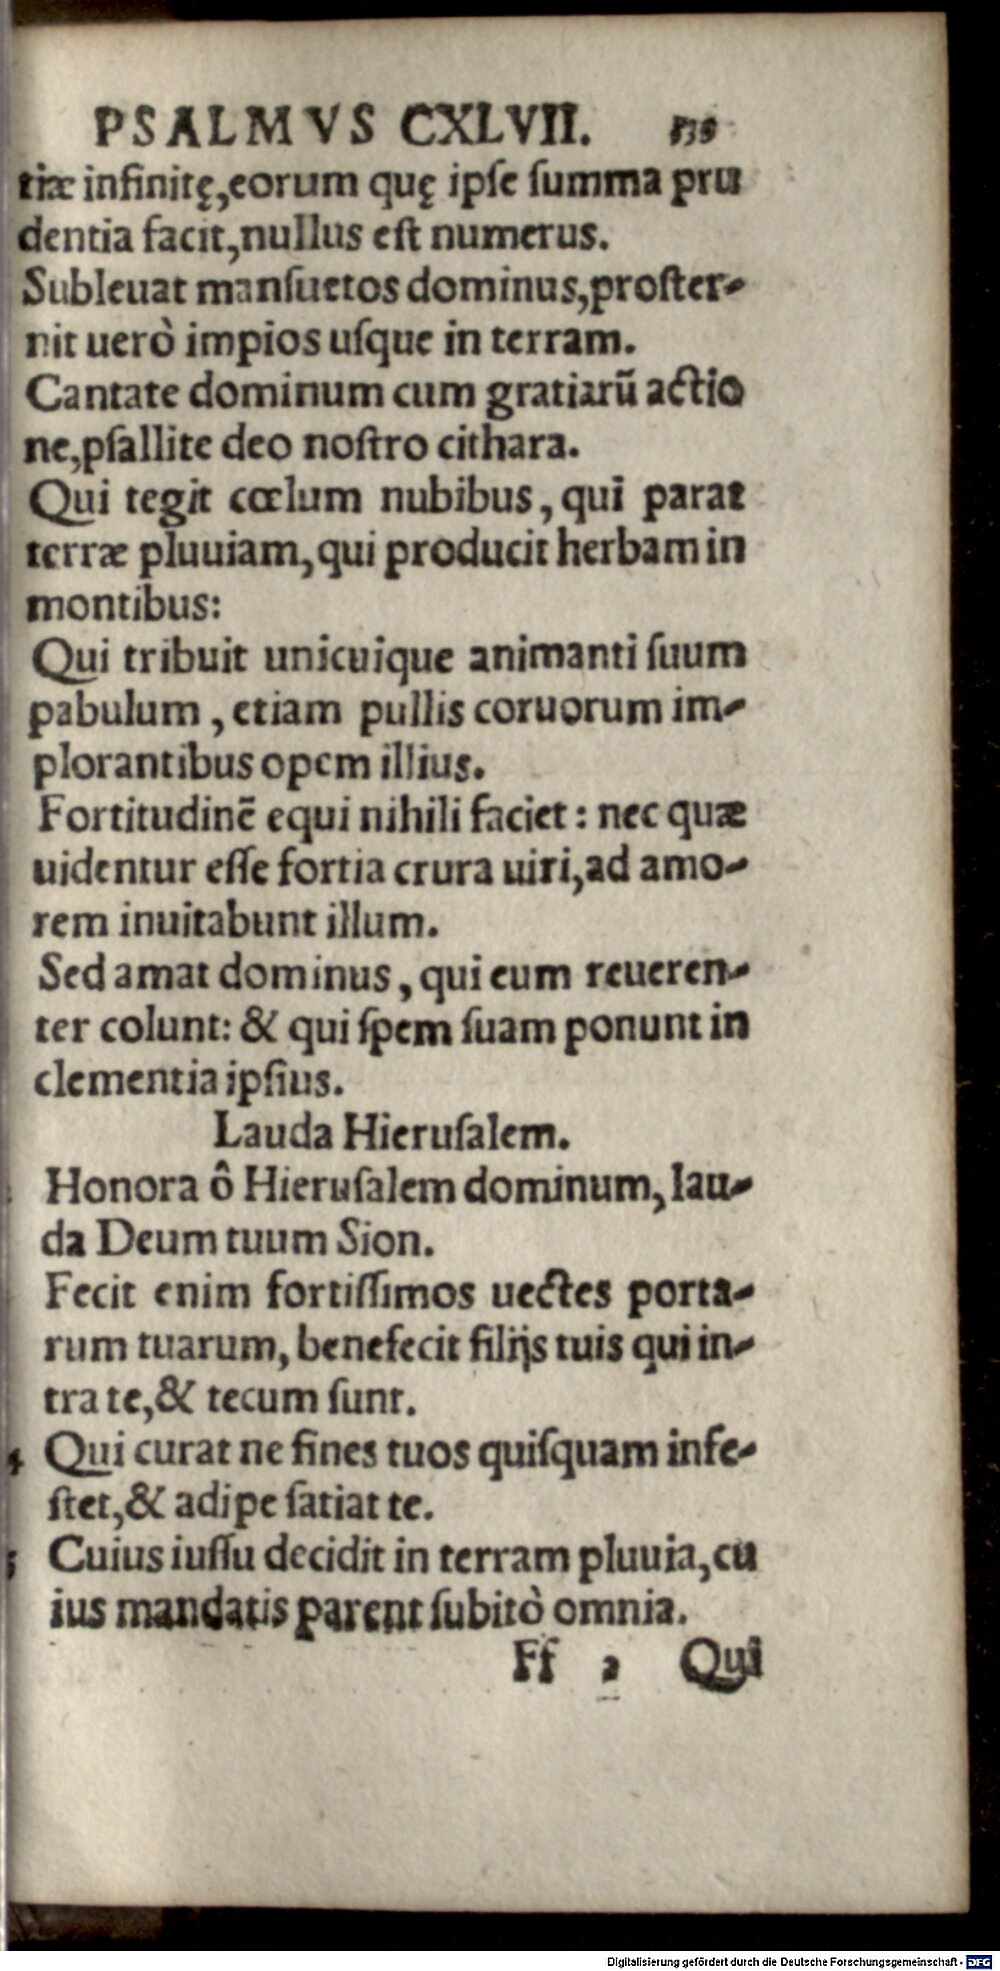 PSALMVS CXLVII.
tiæ infinitę,eorum quę ipſe ſumma pru
dentia facit,nullus eſt numerus.
Subleuat manſuetos dominus,proſter-
nit uerò impios uſque in terram.
Cantate dominum cum gratiarū actio
ne,pſallite deo noſtro cithara.
Qui tegit cœlum nubibus, qui parat
terræ pluuiam,qui producit herbam in
montibus:
Qui tribuit unicuique animanti ſuum
pabulum, etiam pullis coruorum im-
plorantibus opem illius.
Fortitudinē equi nihili faciet: nec quæ
uidentur eſſe fortia crura uiri,ad amo-
rem inuitabunt illum.
Sed amat dominus, qui eum reueren-
ter colunt: & qui ſpem ſuam ponunt in
clementia ipſius.
Lauda Hieruſalem.
Honora ô Hieruſalem dominum, lau-
da Deum tuum Sion.
Fecit enim fortiſſimos uectes porta-
rum tuarum, benefecit filijs tuis qui in-
tra te,& tecum ſunt.
4 Qui curat ne fines tuos quiſquam infe-
ſtet,& adipe ſatiat te.
5 Cuius iuſſu decidit in terram pluuia,cu
ius mandatis parent ſubitò omnia.
Ff 2 Qui
Digitalisierung gefördert durch die Deutsche Forschungsgemeinschaft - DFG